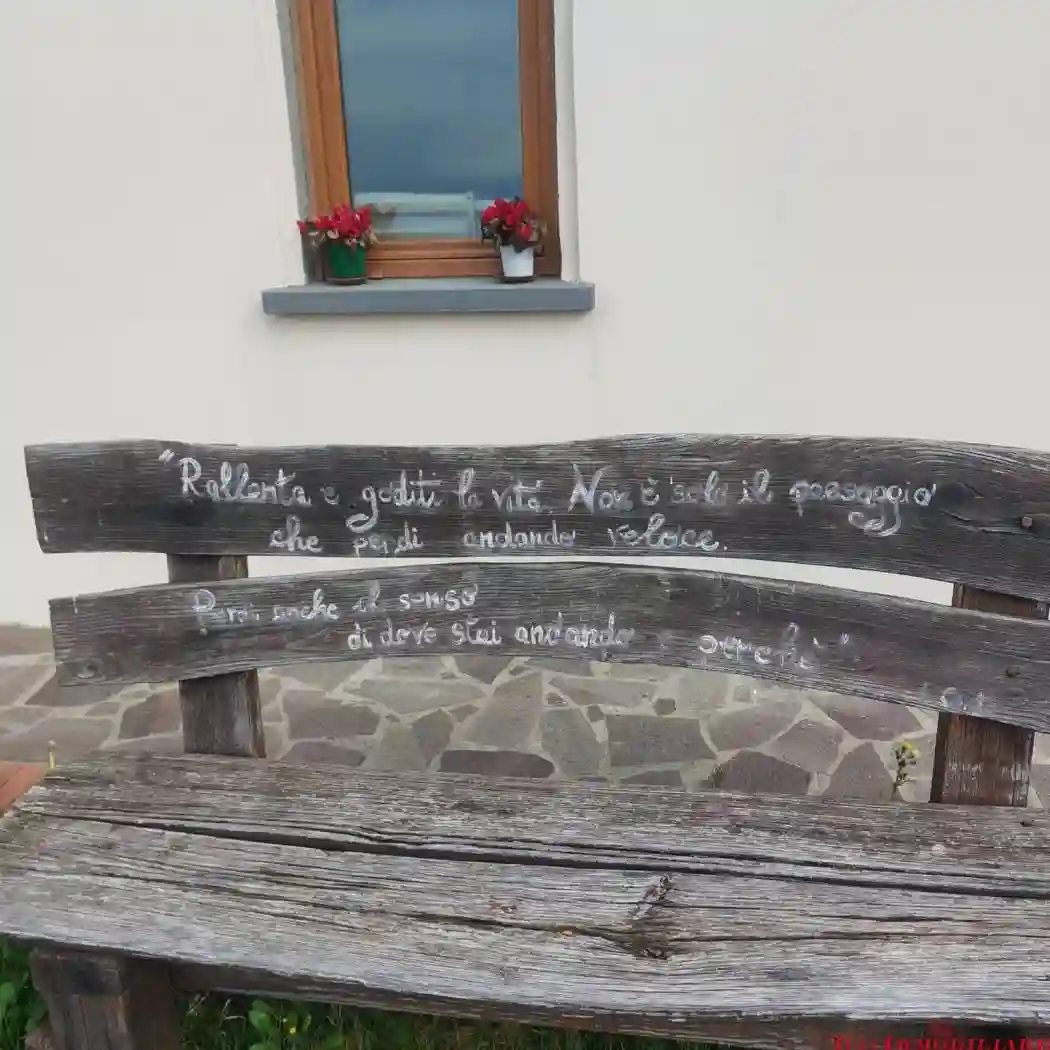 "Rallenta e goditi la vita. Non è solo il paesaggio
che perdi andando veloce.
Perdi anche il senso
di dove stai andando e perché"